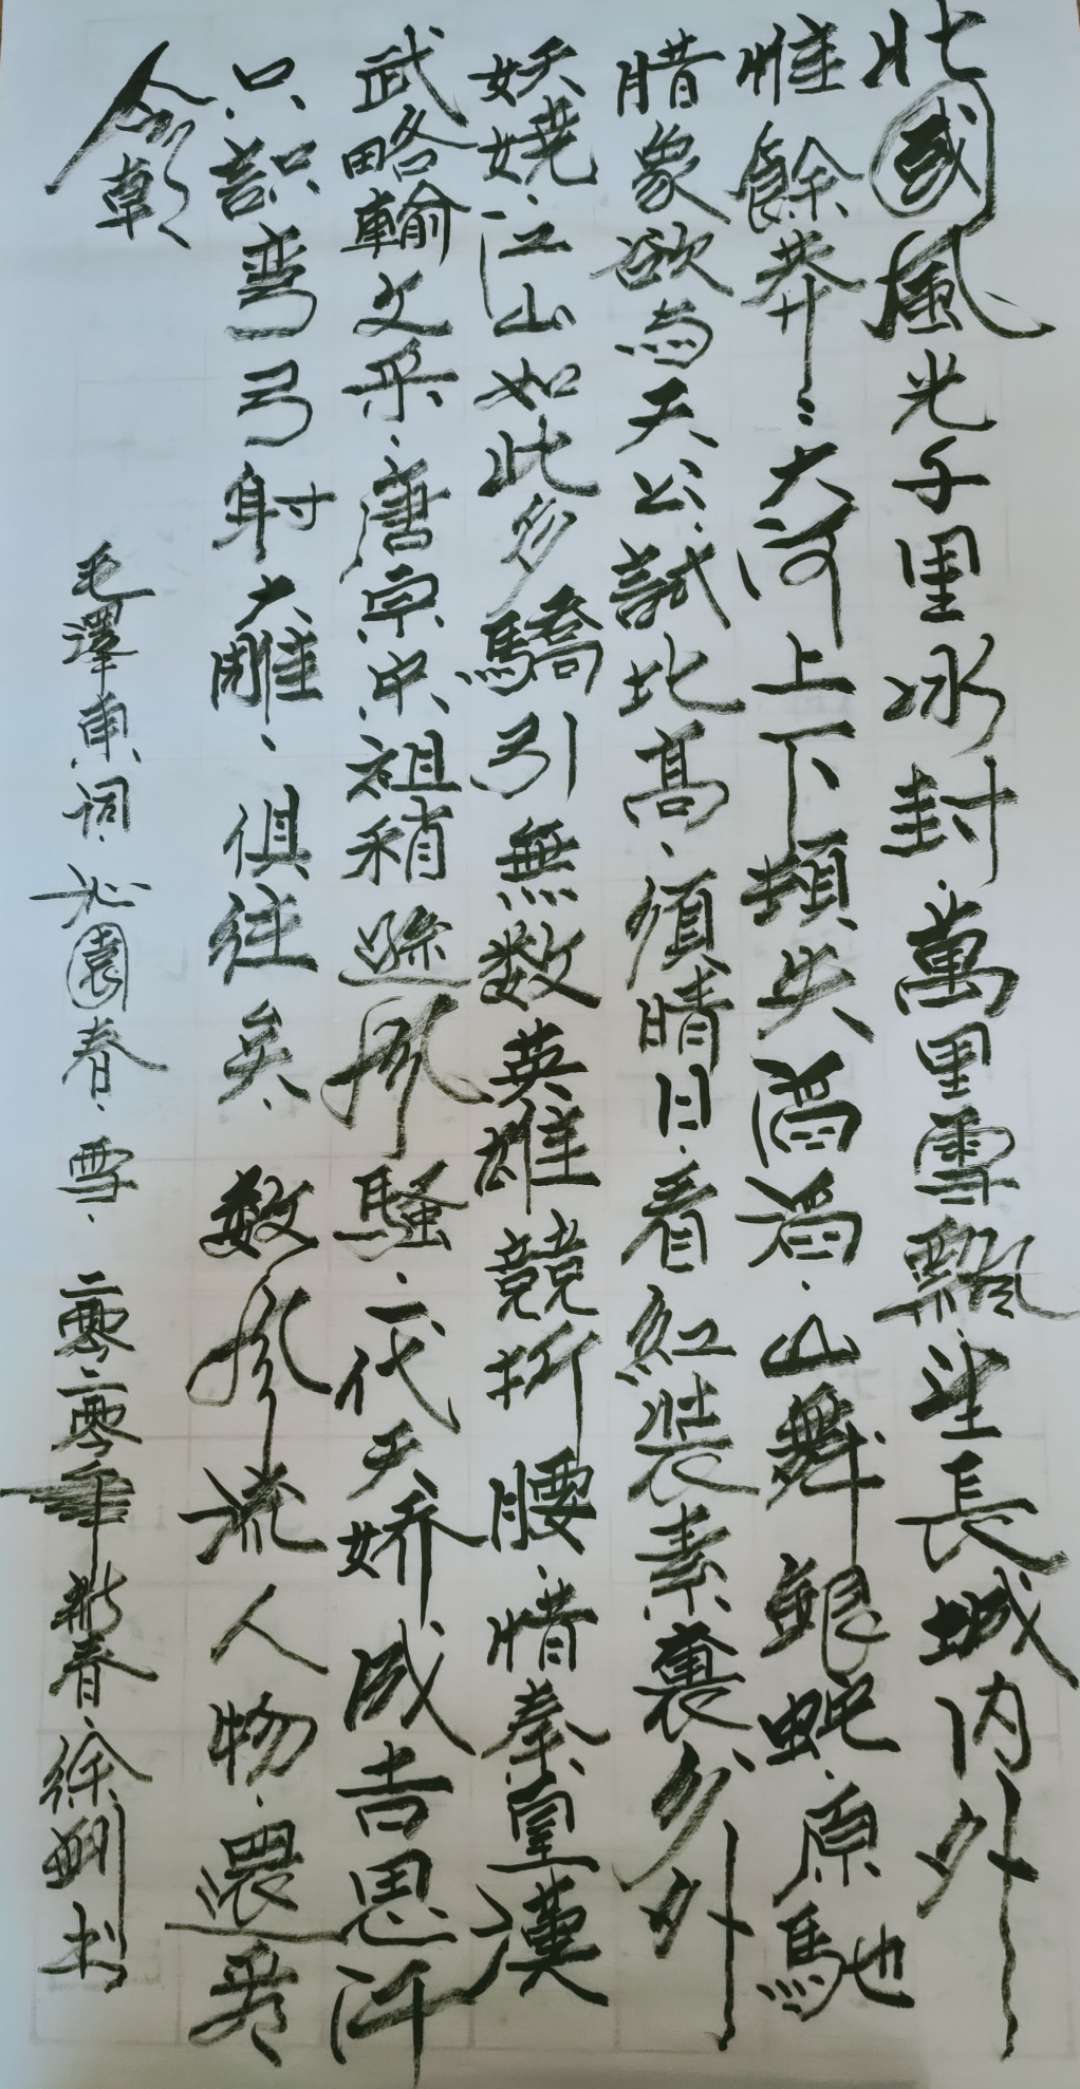 北國風光千里冰封萬里雪飄望長城内外
惟餘莽〻大河上下頓失滔滔山舞銀蛇原馳
腊象欲与天公試比高須晴日看紅裝素裹分外
妖娆江山如此多驕引無数英雄競折腰惜秦皇漢
武略輸文采唐宗宋祖稍遜风騷一代天娇成吉思汗
只識弯弓射大雕俱往矣数风流人物還看
今朝
毛澤東詞沁園春雪二零二零年新春徐书